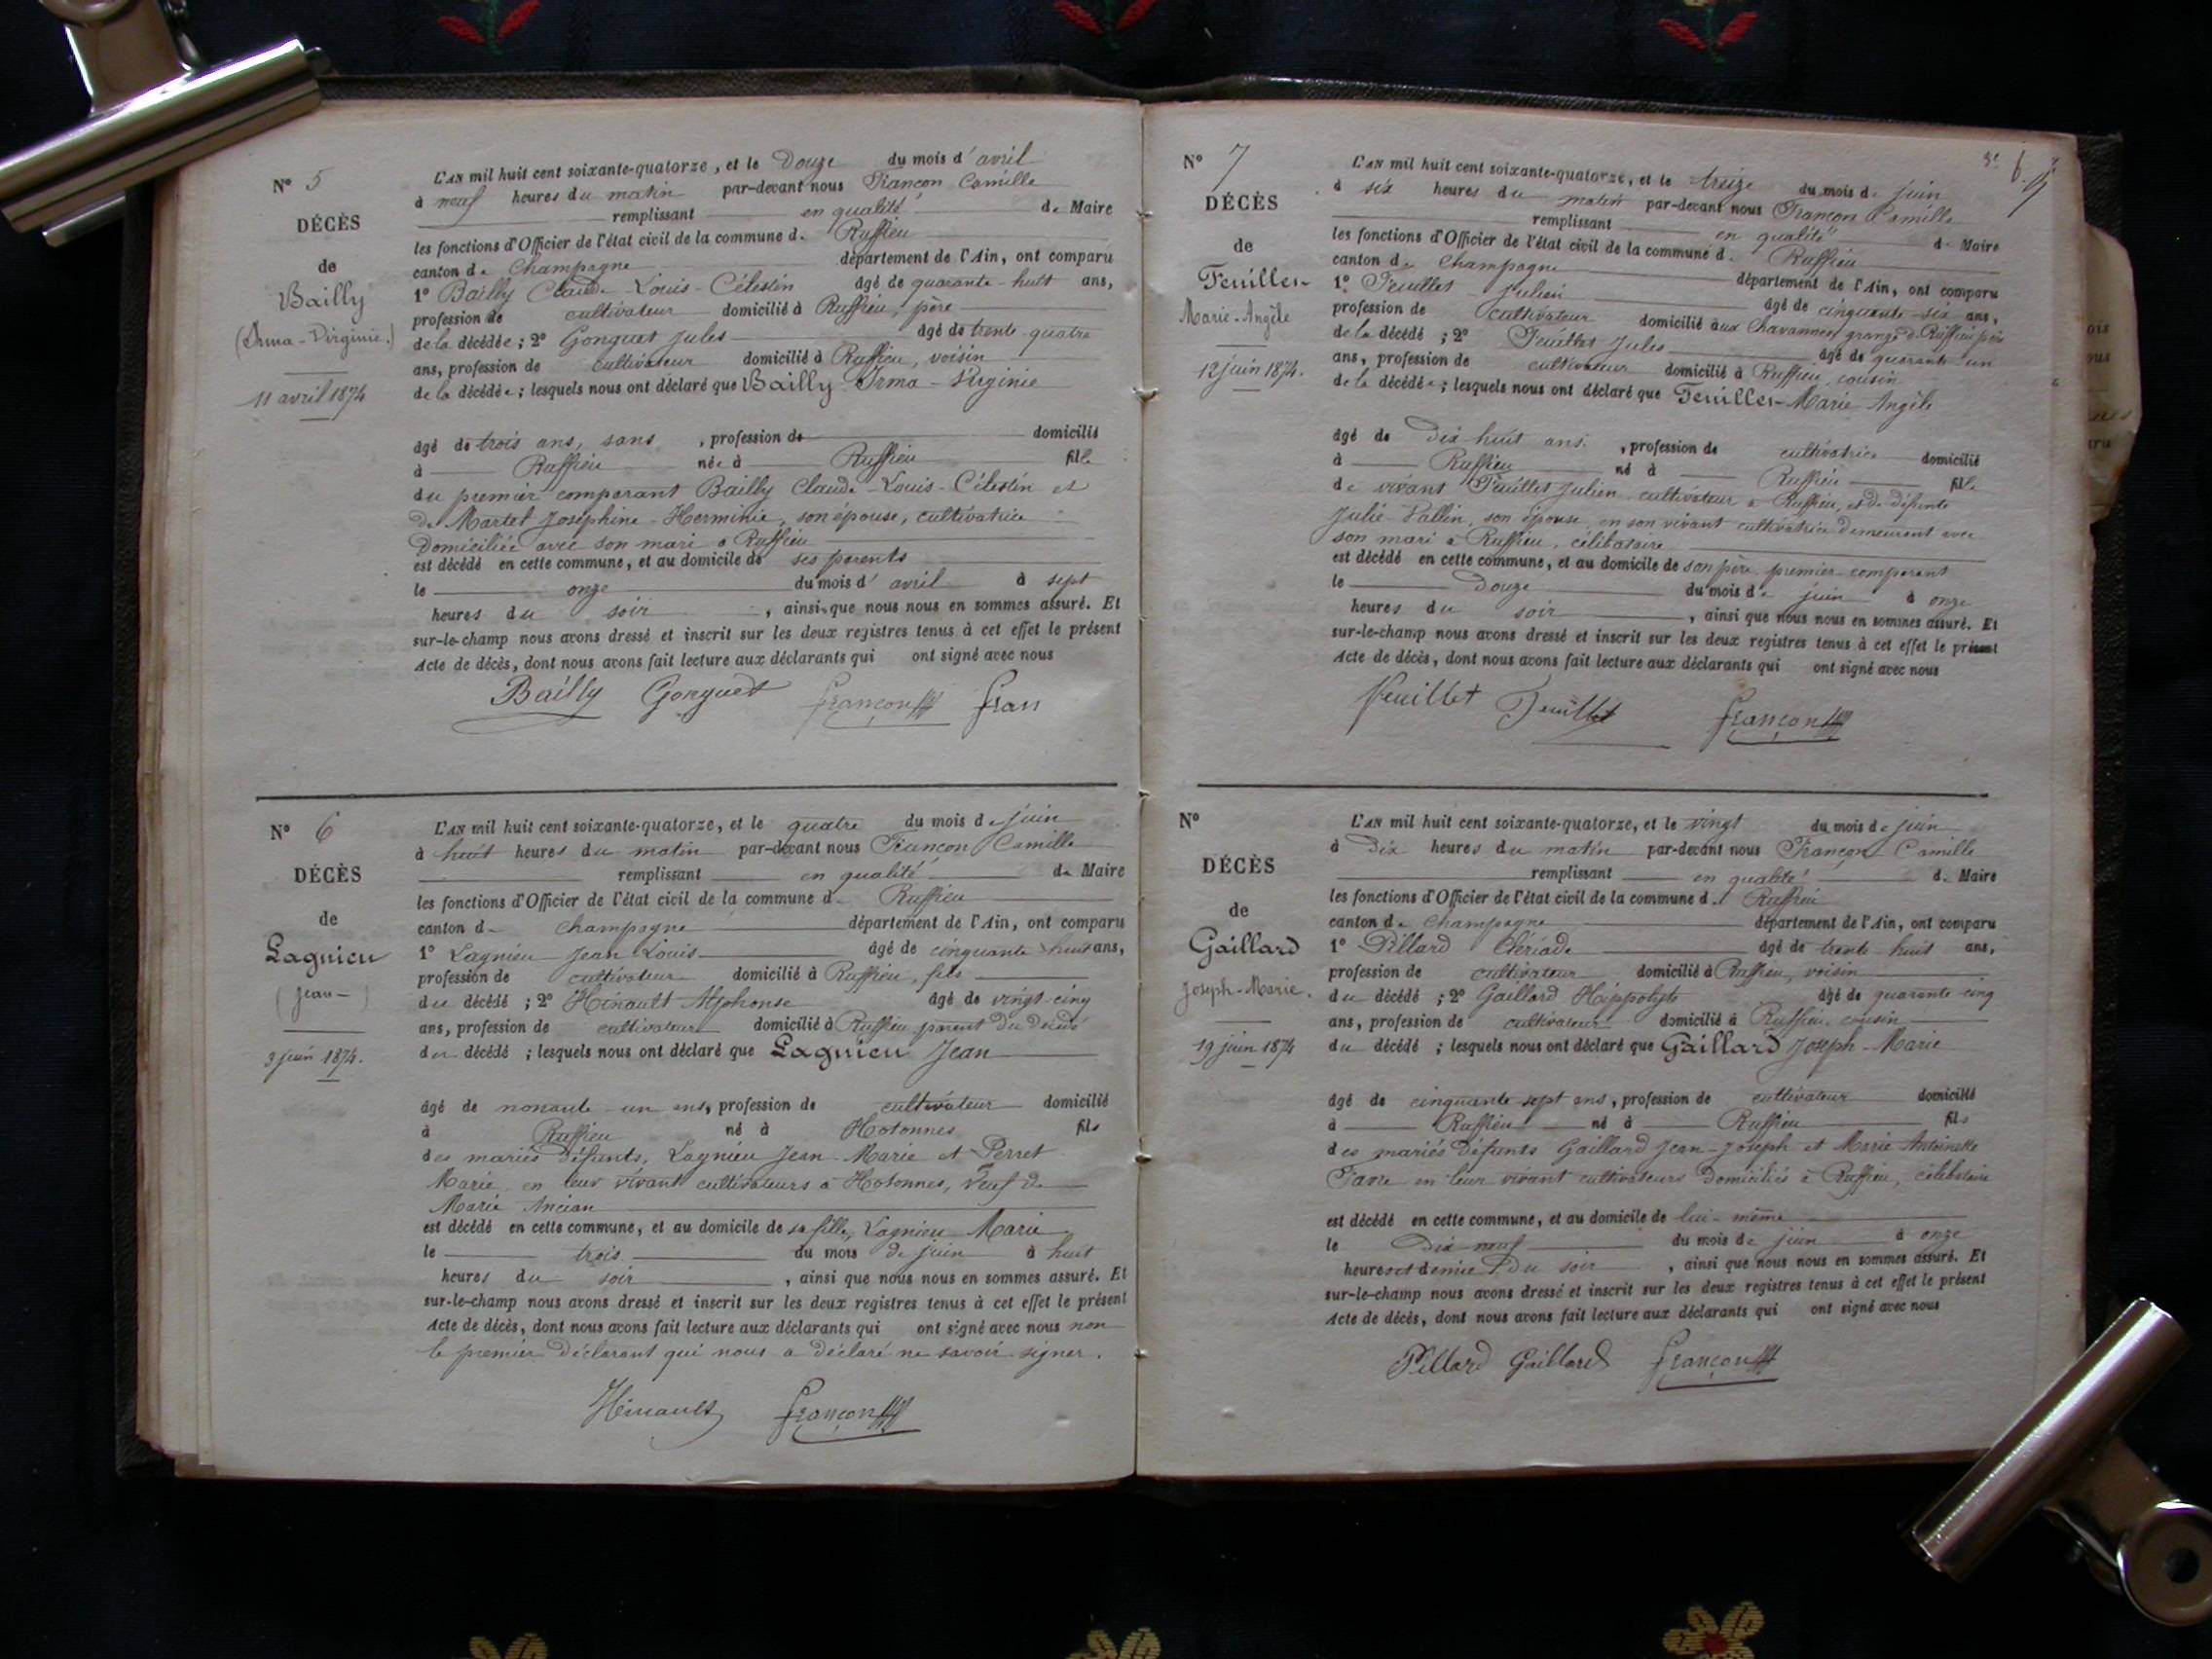 N° 5
DÉCÈS
de
Bailly
(Irma-Virginie.)
11 avril 1874
L'AN mil huit cent soixante-quatorze, et le Douze du mois d'avril
à neuf heures du matin par-devant nous Françon Camille
remplissant en qualité de Maire
les fonctions d'Officier de l'état civil de la commune de Ruffieu
canton de Champagne département de l'Ain, ont comparu
1° Bailly Claude-Louis-Célestin âgé de quarante-huit ans,
profession de cultivateur domicilié à Ruffieu, père
de la décédée ; 2° Gonguet Jules âgé de trente-quatre
ans, profession de cultivateur domicilié à Ruffieu, voisin
de la décédée ; lesquels nous ont déclaré que Bailly Irma-Virginie
âgé de trois ans, sans , profession de domicilié
à Ruffieu née à Ruffieu fille
du premier comparant Bailly Claude-Louis-Célestin et
de Martel Joséphine-Herminie, son épouse, cultivatrice
Domiciliée avec son mari à Ruffieu
est décédé en cette commune, et au domicile de ses parents
le onze du mois d'avril à sept
heures du soir , ainsi que nous nous en sommes assuré. Et
sur-le-champ nous avons dressé et inscrit sur les deux registres tenus à cet effet le présent
Acte de décès, dont nous avons fait lecture aux déclarants qui ont signé avec nous
Bailly Gonguet Françon Fran
N° 6
DÉCÈS
de
Lagnieu
(Jean-)
3 juin 1874.
L'AN mil huit cent soixante-quatorze, et le quatre du mois de juin
à huit heures du matin par-devant nous Françon Camille
remplissant en qualité de Maire
les fonctions d'Officier de l'état civil de la commune de Ruffieu
canton de Champagne département de l'Ain, ont comparu
1° Lagnieu Jean-Louis âgé de cinquante-huit ans,
profession de cultivateur domicilié à Ruffieu, fils
du décédé ; 2° Hénault Alphonse âgé de vingt-cinq
ans, profession de cultivateur domicilié à Ruffieu parent du décédé
du décédé ; lesquels nous ont déclaré que Lagnieu Jean
âgé de nonante-un ans, profession de cultivateur domicilié
à Ruffieu né à Hotonnes fils
des mariés défunts, Lagnieu Jean-Marie et Perret
Marie en leur vivant cultivateurs à Hotonnes, veuf de
Marie Ancian
est décédé en cette commune, et au domicile de sa fille, Lagnieu Marie
le trois du mois de juin à huit
heures du soir , ainsi que nous nous en sommes assuré. Et
sur-le-champ nous avons dressé et inscrit sur les deux registres tenus à cet effet le présent
Acte de décès, dont nous avons fait lecture aux déclarants qui ont signé avec nous non
le premier déclarant qui nous a déclaré ne savoir signer.
Hénault Françon
N° 7
DÉCÈS
de
Feuillet
Marie-Angèle
12 juin 1874.
L'AN mil huit cent soixante-quatorze, et le treize du mois de juin
à six heures du matin par-devant nous Françon Camille
remplissant en qualité de Maire
les fonctions d'Officier de l'état civil de la commune de Ruffieu
canton de Champagne département de l'Ain, ont comparu
1° Feuillet Julien âgé de cinquante-six ans,
profession de cultivateur domicilié aux Chavannes, grange de Ruffieu père
de la décédé ; 2° Feuillet Jules âgé de quarante-un
ans, profession de cultivateur domicilié à Ruffieu, cousin
de la décédée ; lesquels nous ont déclaré que Feuillet Marie-Angèle
âgé de Dix-huit ans , profession de cultivatrice domicilié
à Ruffieu né à Ruffieu fille
de vivant Feuillet Julien cultivateur à Ruffieu, et de défunte
Julie Vallin, son épouse, en son vivant cultivatrice demeurant avec
son mari à Ruffieu, célibataire
est décédé en cette commune, et au domicile de son père premier comparant
le Douze du mois de juin à onze
heures du soir , ainsi que nous nous en sommes assuré. Et
sur-le-champ nous avons dressé et inscrit sur les deux registres tenus à cet effet le présent
Acte de décès, dont nous avons fait lecture aux déclarants qui ont signé avec nous
Feuillet Feuillet Françon
N°
DÉCÈS
de
Gaillard
Joseph-Marie.
19 juin 1874
L'AN mil huit cent soixante-quatorze, et le vingt du mois de juin
à Dix heures du matin par-devant nous Françon Camille
remplissant en qualité de Maire
les fonctions d'Officier de l'état civil de la commune de Ruffieu
canton de Champagne département de l'Ain, ont comparu
1° Pillard Clériade âgé de trente-huit ans,
profession de cultivateur domicilié à Ruffieu, voisin
du décédé ; 2° Gaillard Hippolyte âgé de quarante-cinq
ans, profession de cultivateur domicilié à Ruffieu, cousin
du décédé ; lesquels nous ont déclaré que Gaillard Joseph-Marie
âgé de cinquante-sept ans, profession de cultivateur domicilié
à Ruffieu né à Ruffieu fils
des mariés défunts Gaillard Jean-Joseph et Marie Antoinette
Favre en leur vivant cultivateurs domiciliés à Ruffieu, célibataire
est décédé en cette commune, et au domicile de lui-même
le Dix-neuf du mois de juin à onze
heures et demie du soir , ainsi que nous nous en sommes assuré. Et
sur-le-champ nous avons dressé et inscrit sur les deux registres tenus à cet effet le présent
Acte de décès, dont nous avons fait lecture aux déclarants qui ont signé avec nous
Pillard Gaillard Françon